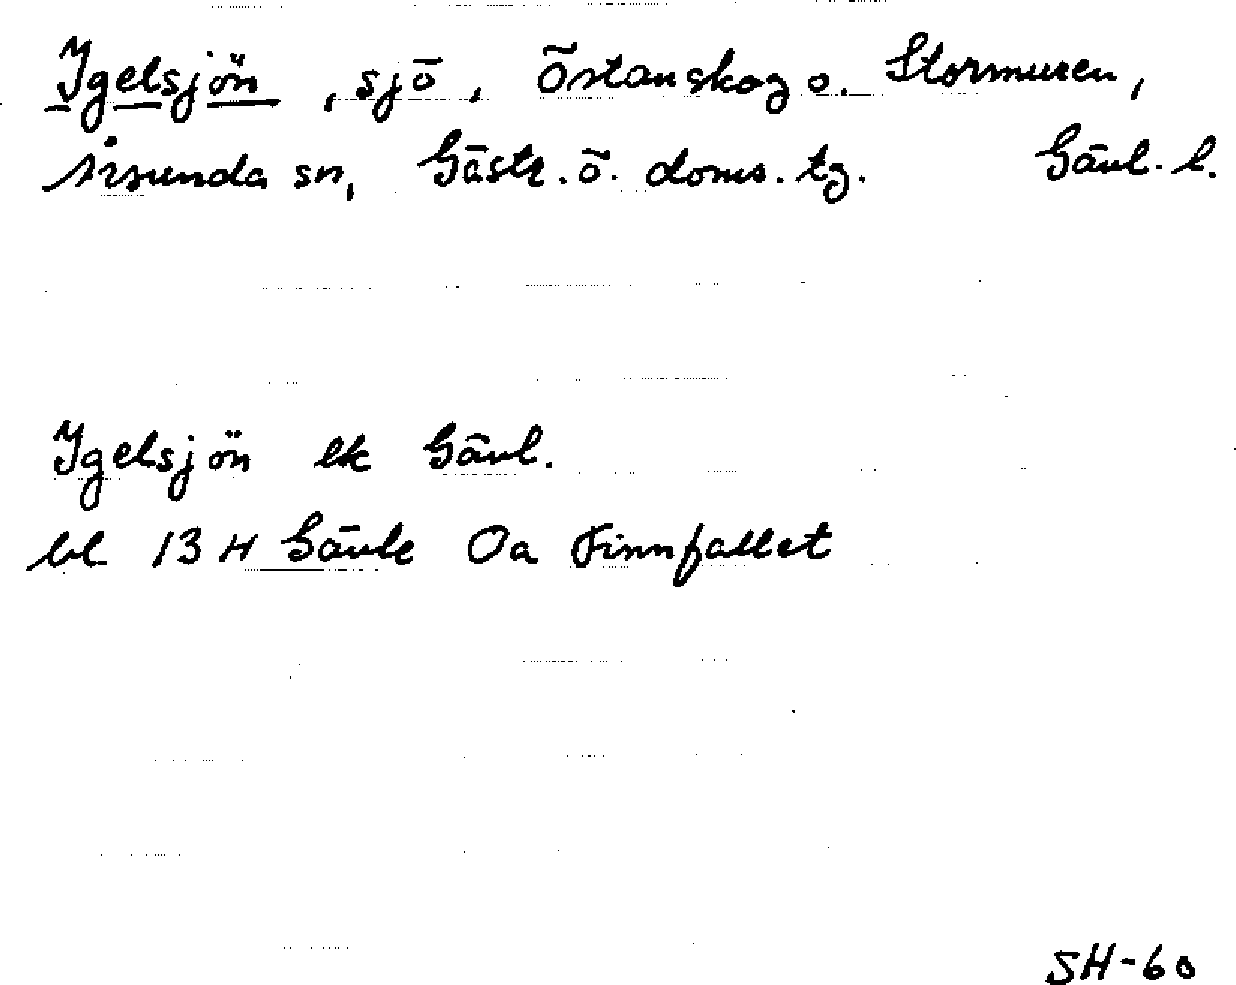 Igelsjön, sjö, Östanskog o. Stormuren,
Årsunda sn, Gästr. ö. doms. tg. Gävl. l.
Igelsjön ek Gävl.
bl 13 H Gävle Oa Finnfallet
SH-60